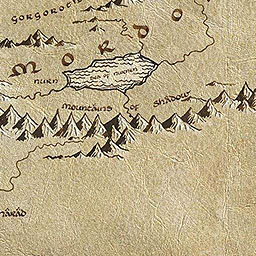 GORGOROTH
MORDO
NURN
SEA OF NURNEN
MOUNTAINS OF SHADOW
HARAD